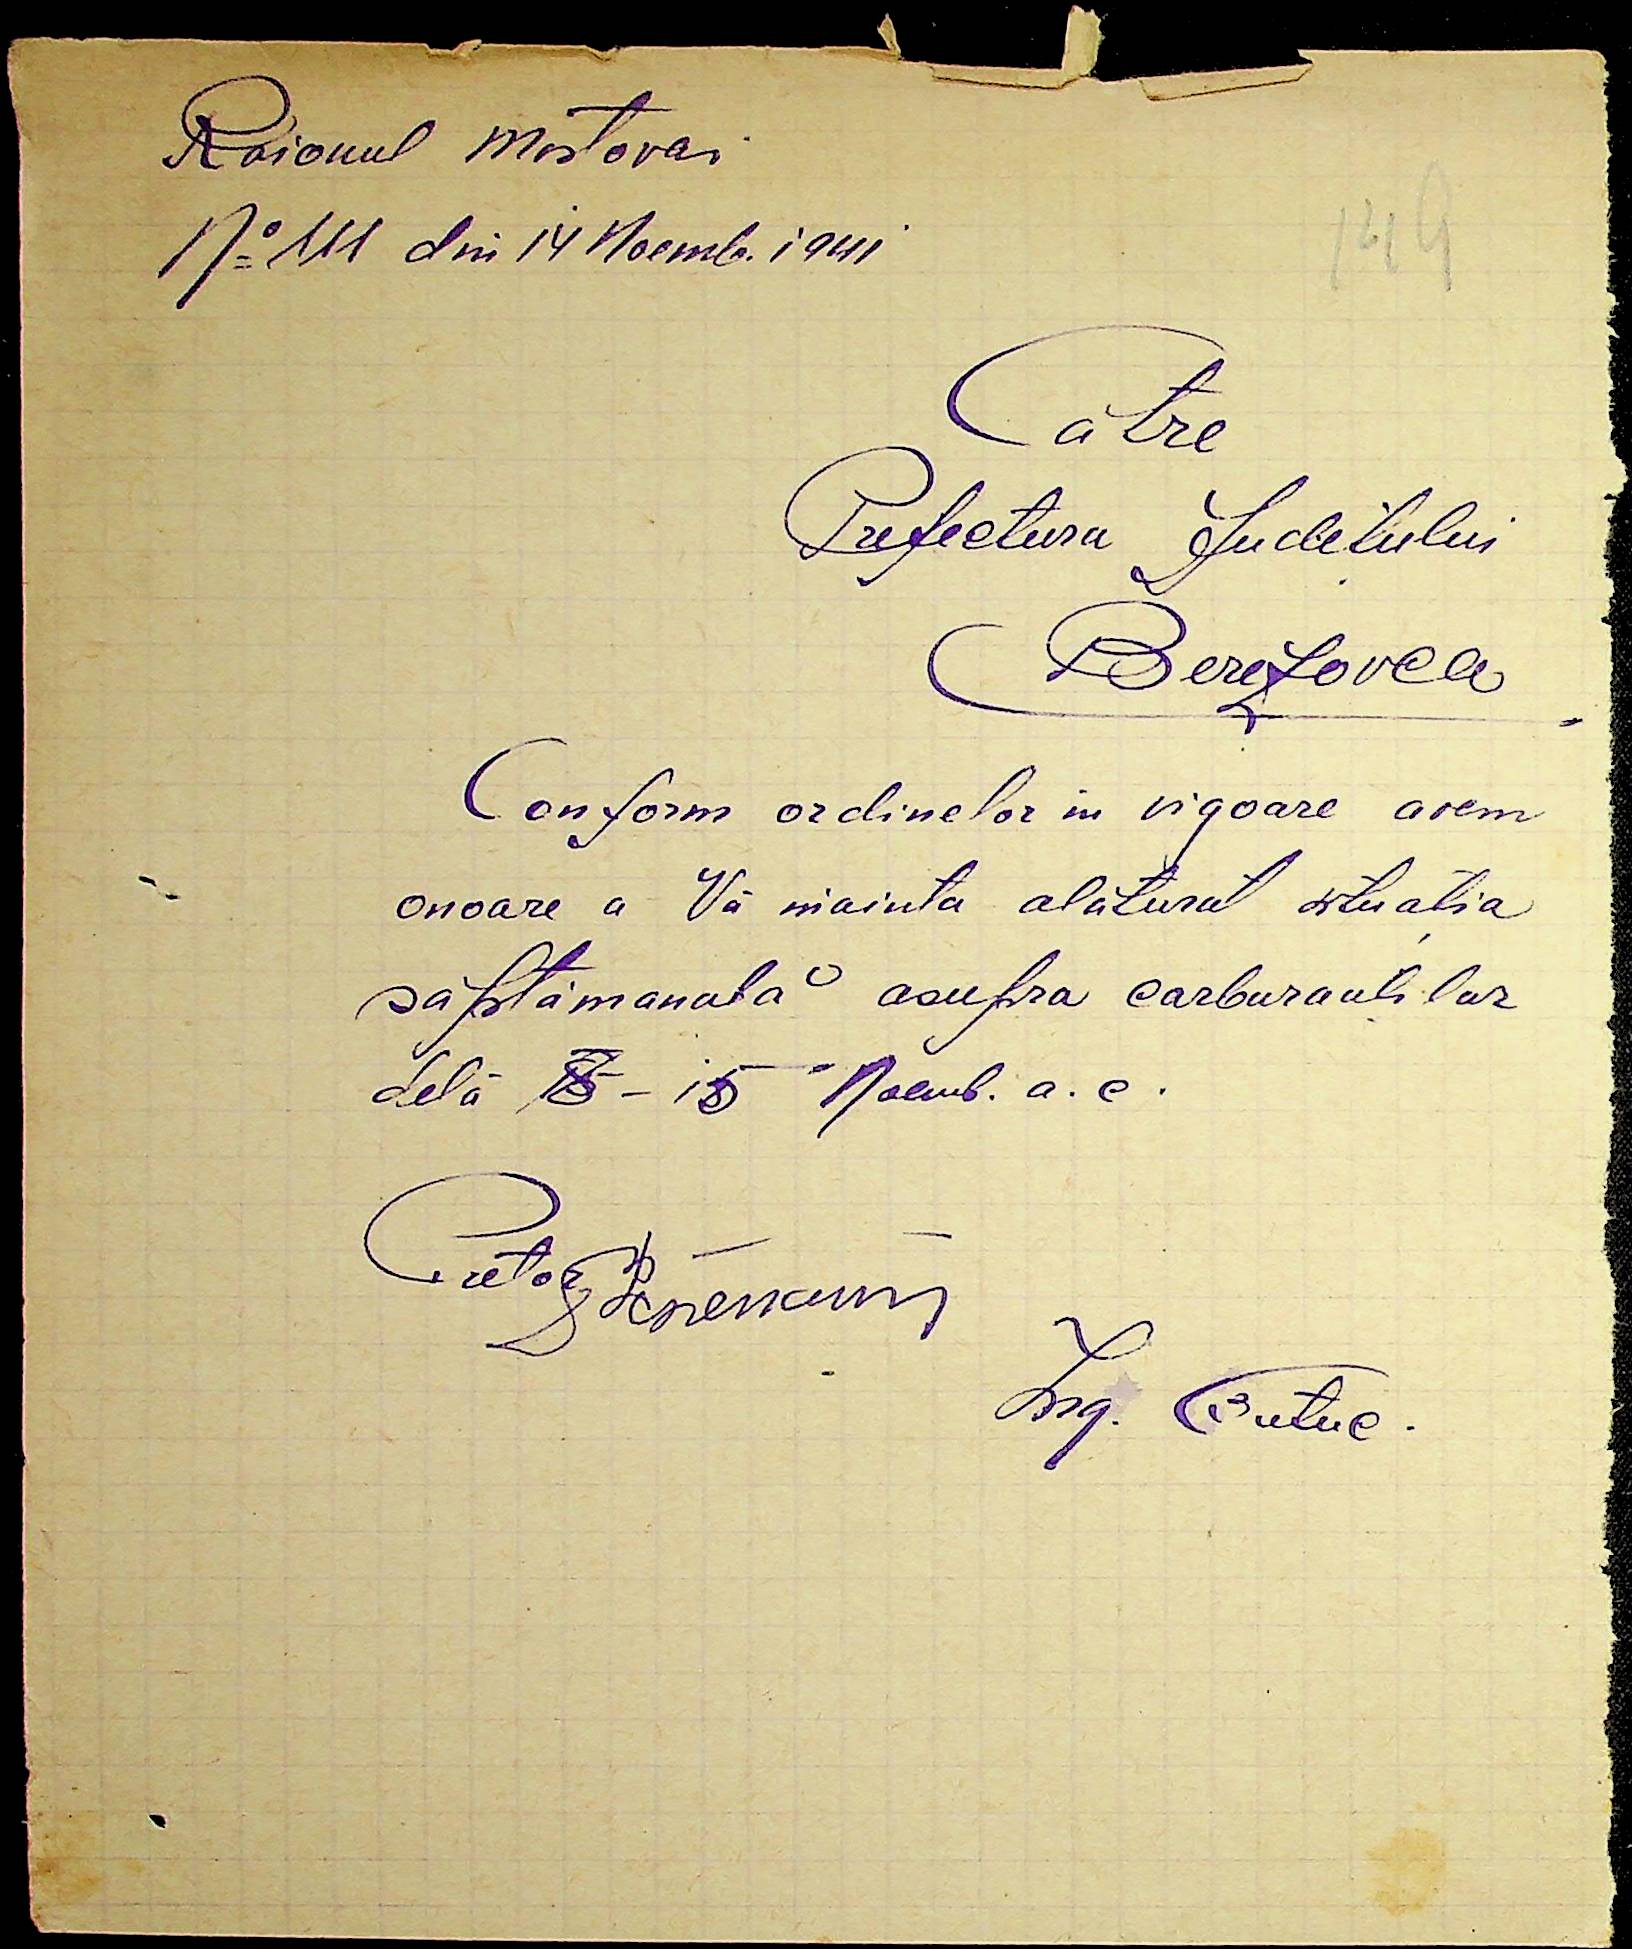 Raionul Mostovoi
No 111 din 14 Noemb. 1941
149
Către
Prefectura Județului
Berezovca
Conform ordinelor in vigoare avem
onoare a Vă inainta alăturat situația
săptămanală asupra carburanților
dela 8 - 15 Noemb. a. c.
Pretor
Ing. Butuc.